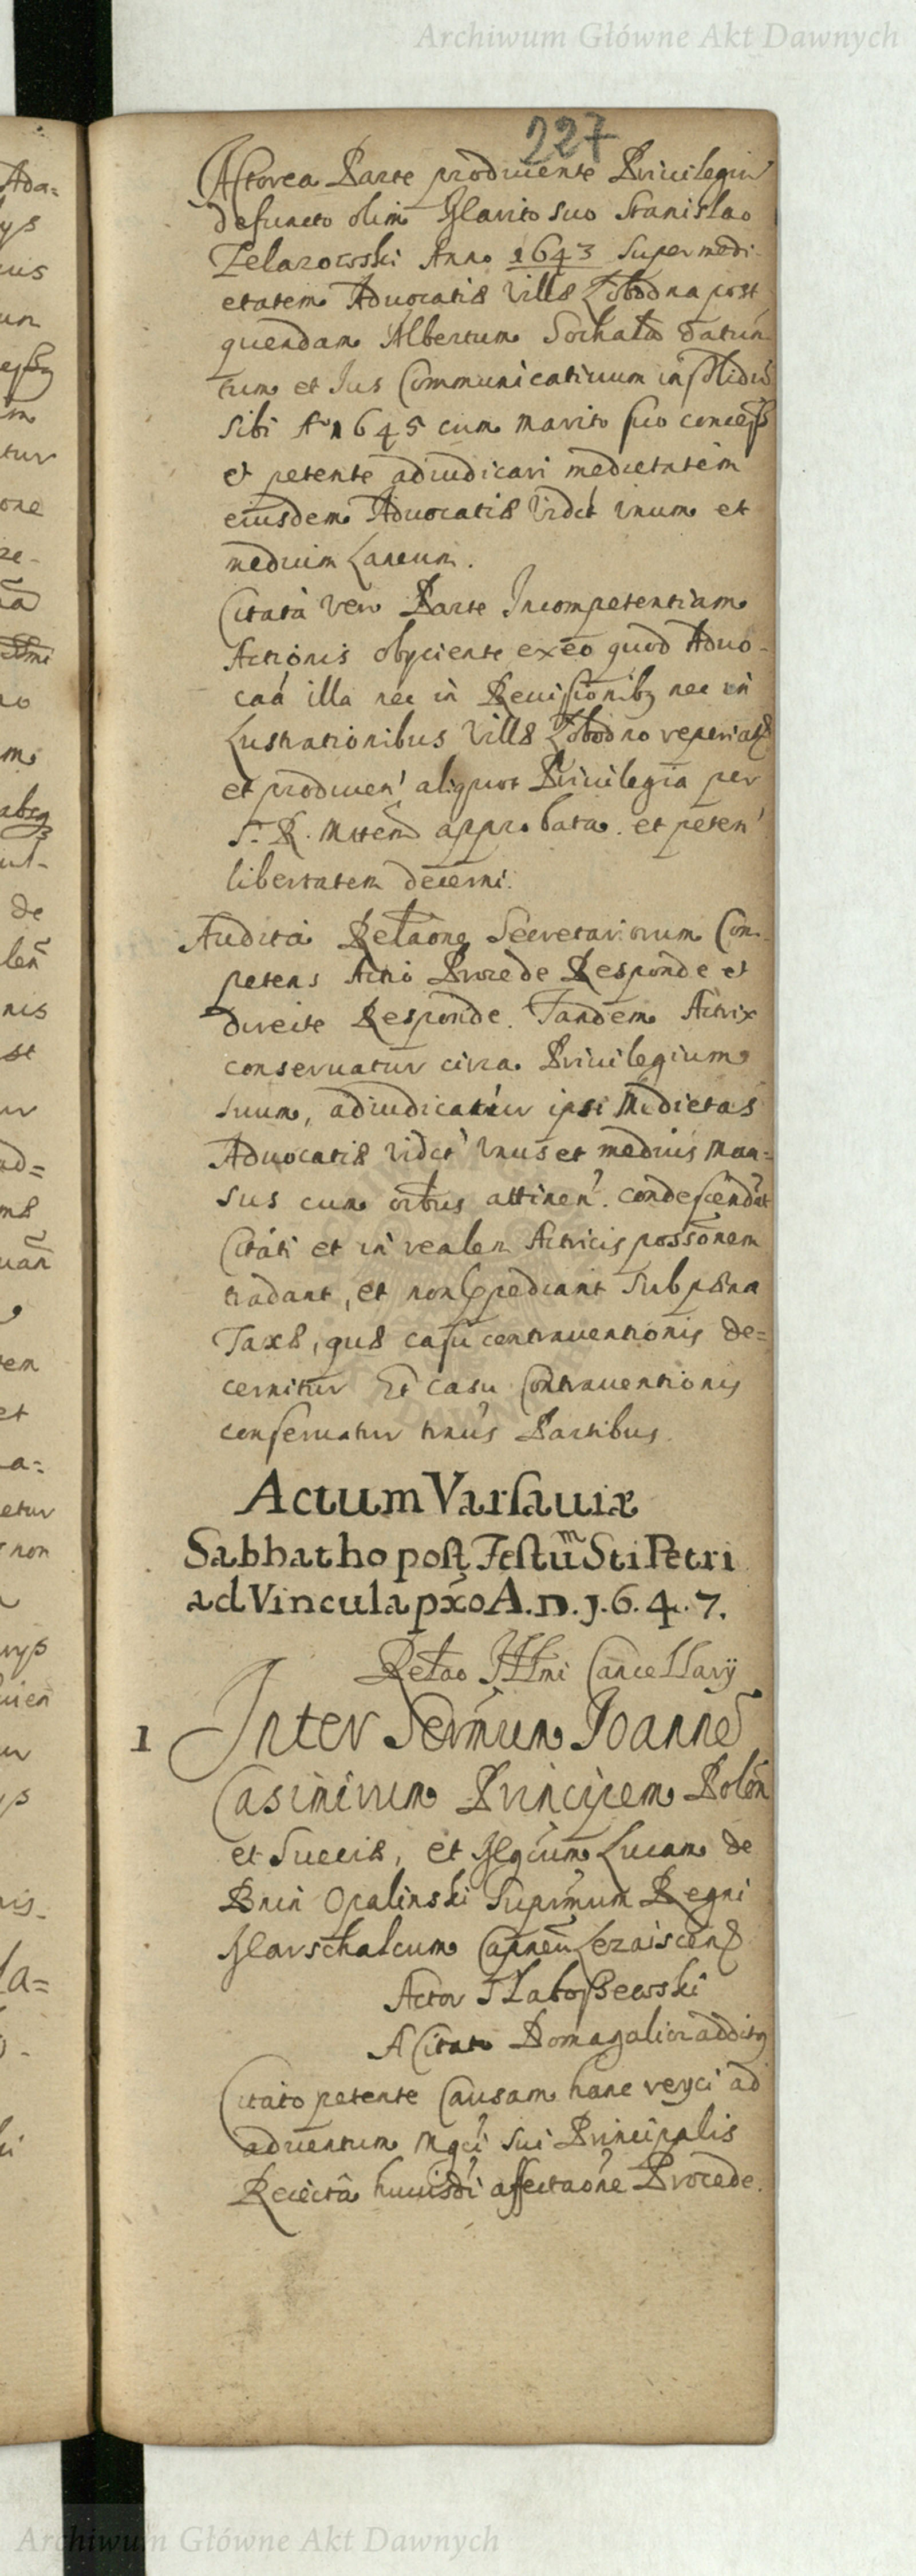 Archiwum Główne Akt Dawnych
227
Actorea Parte producente Privilegiū
defuncto olim Marito suo Stanislao
Zelazowski Anno 1643 Super medi-
etatem Advocatiæ Villæ Łobodna post
quendam Albertum Sochala datum
tum et Ius Communicativum in solidū
sibi Aº 1645 cum marito suo concess
et petente adiudicari medietatem
eiusdem Advocatiæ Vidct unum et
medium Laneum.
Citatâ vero Parte Incompetentiam
Actionis obyciente ex eo quod Advo-
caã illa nec in Revisionibq nec in
Lustrationibus Villæ Łobodno reperiat
et producen' aliquot Privilegia per
S. R. Mttem approbata. et peten'
libertatem decerni.
Audita Relãone Secretariorum Com-
petens Actio Procede Responde et
directe Responde. Tandem Actrix
conservatur circa Privilegium
suum, adiudicatur ipsi Medietas
Advocatiæ vidct unus et medius Man=
sus cum oĩbus attinen'. condescendāt
Citati et in realem Actricis possõnem
tradant, et non Impediant sub pæna
Taxæ, quæ casu contraventionis de=
cernitur Et casu Contraventionis
conservatur tnus Partibus.
Actum Varsaviæ
Sabbatho post Festũm Sti Petri
ad Vincula pxo A. D. 1. 6. 4. 7.
Relao Illmi Cancellarij
1 Inter Sermum Joannē
Casimirum Principem Polon
et Sueciæ, et Mgcum Lucam de
Bnin Opalinski Supremum Regni
Marschalcum Capneu Lezaiscen
Actor Kłaboszewski
A Citato Domagalicz additq
Citato petente Causam hanc reyci ad
adventum Mgci sui Principalis
Reiectâ huiusdi affectaone Procede.
Archiwum Główne Akt Dawnych